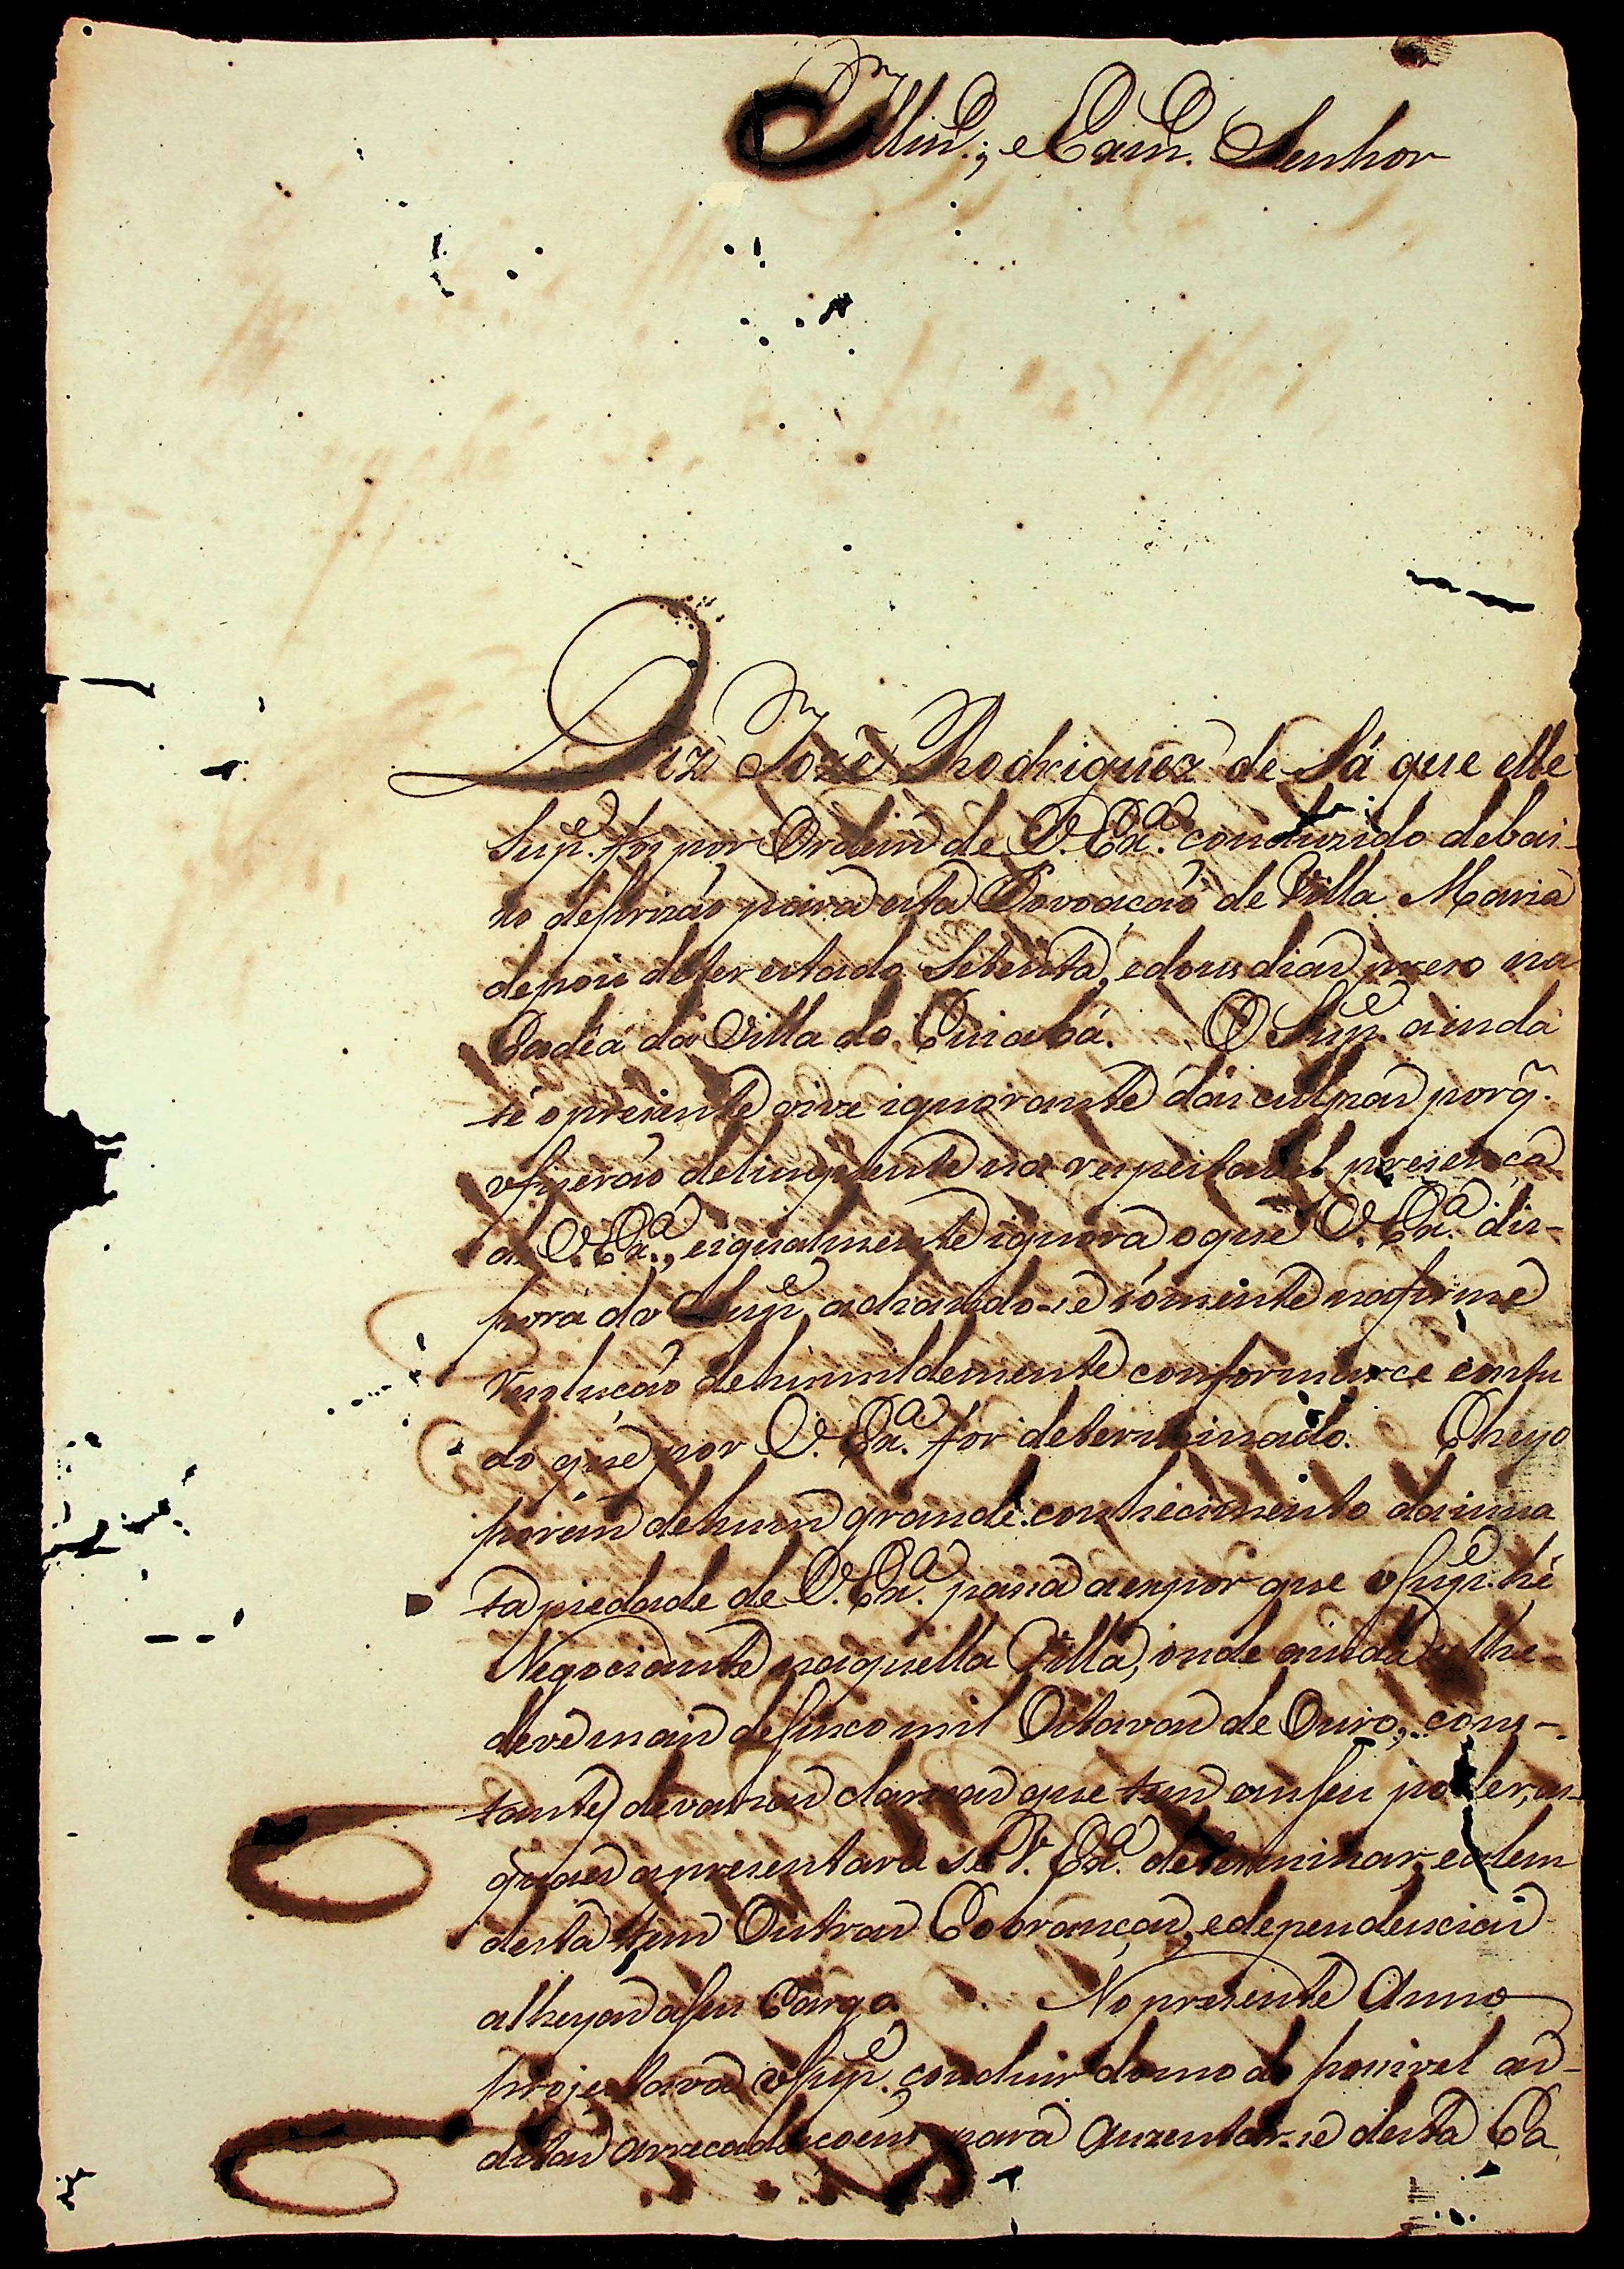 Illm.; e Exm. Senhor
Diz Jozé Rodriguez de Sá que elle
Sup.e foi por Ordem de V. Ex.a conduzido debai-
xo deprizaõ para esta Povoaçaõ de Villa Maria
depois deter estado Setenta, edous dias prezo na
Cadêa da Villa do Cuiabá. O Sup.e ainda
té opresente vive ignorante dás culpas porq̃.
ofizeraõ delinquente na respeitavel presença
de V. Ex.a, eigualmente ignora oque V. Ex.a dis-
porá do Sup.e achando-se sómente nafirme
resoluçaõ dehumildemente conformarce emtu
do que por V. Ex.a for determinado. Cheyo
porém dehum grande conhecimento dainna
ta piedade de V. Ex.a passa aexpor que oSup.e hé
Negociante naquella Villa, onde ainda selhe-
deve mais deSinco mil Oitavas de Ouro, cons-
tantes devarias clarezas que tem emSeu poder, as
quaes apresentará se V. Ex.a determinar, ealem
desta tem Outras Cobranças, edependencias
alheyas aSeu Cargo. No presente Anno
projectava oSup.e concluir domodo possivel as
ditas arrecadaçoens para auzentar-se desta Ca